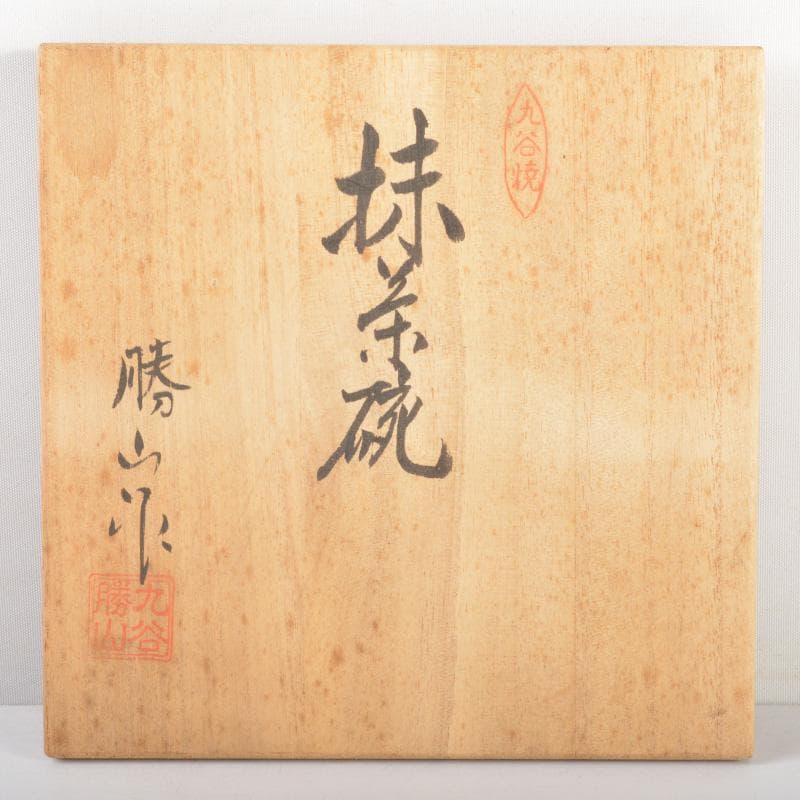 九谷焼
抹茶碗
勝山作
九谷
勝山